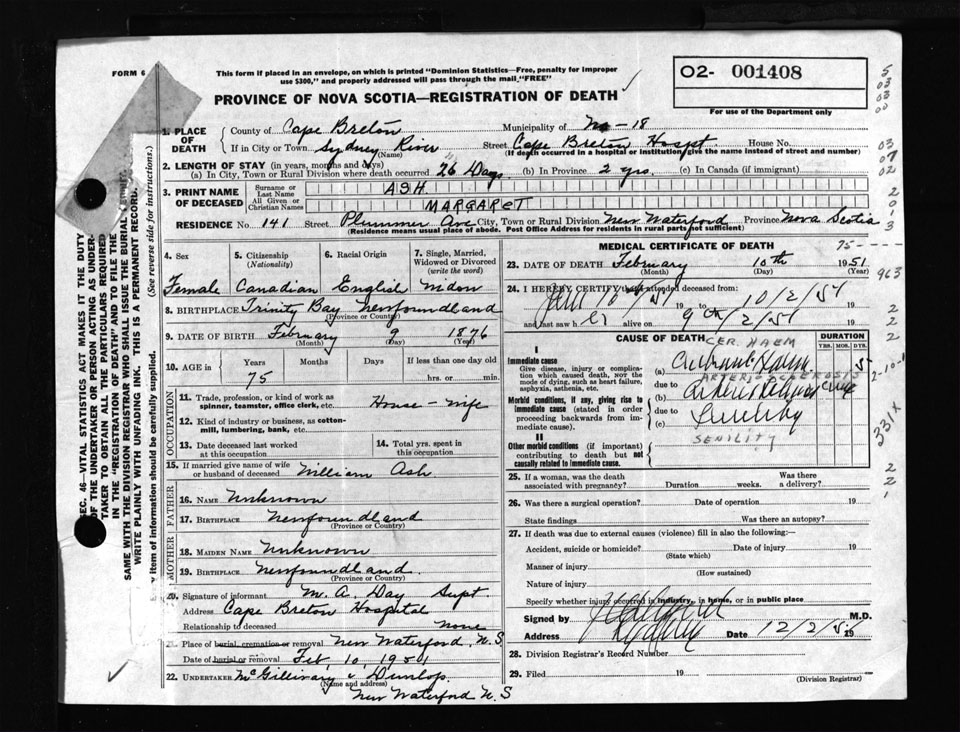 FORM 6
This form if placed in an envelope, on which is printed "Dominion Statistics—Free, penalty for improper
use $300," and properly addressed will pass through the mail, "FREE"
O2- 001408
For use of the Department only
PROVINCE OF NOVA SCOTIA—REGISTRATION OF DEATH
1. PLACE OF DEATH
County of Cape Breton Municipality of No-18
If in City or Town Sydney River Street Cape Breton Hospt. House No.
(Name) (If death occurred in a hospital or institution, give the name instead of street and number)
2. LENGTH OF STAY (in years, months and days)
(a) In City, Town or Rural Division where death occurred 26 Days (b) In Province 2 yrs. (c) In Canada (if immigrant)
3. PRINT NAME OF DECEASED
Surname or Last Name ASH
All Given or Christian Names MARGARET
RESIDENCE No. 141 Street Plummer Ave City, Town or Rural Division New Waterford Province Nova Scotia
(Residence means usual place of abode. Post Office Address for residents in rural parts not sufficient)
4. Sex
5. Citizenship (Nationality)
6. Racial Origin
7. Single, Married, Widowed or Divorced (write the word)
Female Canadian English Widow
8. BIRTHPLACE Trinity Bay Newfoundland
(Province or Country)
9. DATE OF BIRTH February 9 1876
(Month) (Day) (Year)
10. AGE in
Years Months Days If less than one day old
75 hrs. or min.
OCCUPATION
11. Trade, profession, or kind of work as spinner, teamster, office clerk, etc. House-wife
12. Kind of industry or business, as cotton-mill, lumbering, bank, etc.
13. Date deceased last worked at this occupation
14. Total yrs. spent in this occupation
15. If married give name of wife or husband of deceased William Ash
FATHER
16. NAME Unknown
17. BIRTHPLACE Newfoundland
(Province or Country)
MOTHER
18. MAIDEN NAME Unknown
19. BIRTHPLACE Newfoundland
(Province or Country)
20. Signature of informant M. A. Day Supt.
Address Cape Breton Hospital
Relationship to deceased None
21. Place of burial, cremation or removal New Waterford, N.S
Date of burial or removal Feb, 10, 1951
22. UNDERTAKER McGillivary & Dunlop.
(Name and address)
New Waterford N.S
MEDICAL CERTIFICATE OF DEATH
75-
23. DATE OF DEATH February 10th 1951
(Month) (Day) (Year)
24. I HEREBY CERTIFY that I attended deceased from:
19 to 10/2/51 19
and last saw h er alive on 9th/2/51 19
CAUSE OF DEATH
DURATION
YRS. MOS. DYS.
CER. HAEM
I
Immediate cause
Give disease, injury or complication which caused death, nor the mode of dying, such as heart failure, asphyxia, asthenia, etc.
(a) 5
ARTERIOSCLEROSIS
due to
Morbid conditions, if any, giving rise to immediate cause (stated in order proceeding backwards from immediate cause).
(b)
due to
(c) Senility
SENILITY
II
Other morbid conditions (if important) contributing to death but not causally related to immediate cause.
25. If a woman, was the death associated with pregnancy? Duration weeks. Was there a delivery?
26. Was there a surgical operation? Date of operation 19
State findings Was there an autopsy?
27. If death was due to external causes (violence) fill in also the following:—
Accident, suicide or homicide? Date of injury 19
(State which)
Manner of injury
(How sustained)
Nature of injury
Specify whether injury occurred in industry, in home, or in public place
Signed by M.D.
Address Date 12/2/51 19
28. Division Registrar's Record Number
29. Filed 19
(Division Registrar)
SEC. 46—VITAL STATISTICS ACT MAKES IT THE DUTY
OF THE UNDERTAKER OR PERSON ACTING AS UNDER-
TAKER TO OBTAIN ALL THE PARTICULARS REQUIRED
IN THE "REGISTRATION OF DEATH" AND TO FILE THE
SAME WITH THE DIVISION REGISTRAR WHO SHALL ISSUE THE BURIAL
WRITE PLAINLY WITH UNFADING INK. THIS IS A PERMANENT RECORD.
item of information should be carefully supplied. (See reverse side for instructions.)
5
03
03
00
03
07
02
2
0
13
963
2
2
2-10-
331X
2
2
1